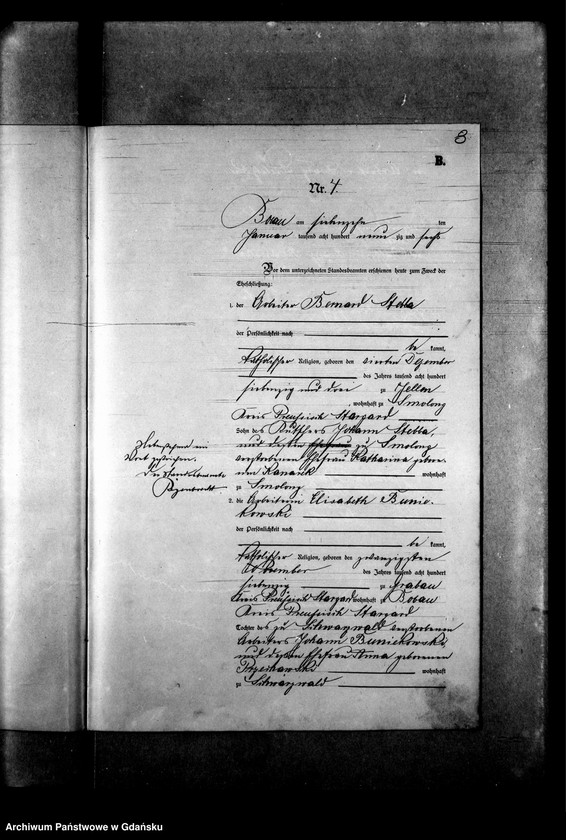 8
B.
Nr. 4
Bobau am siebenzehn ten
Januar tausend acht hundert neun zig und sechs
Vor dem unterzeichneten Standesbeamten erschienen heute zum Zweck der
Eheschließung:
1. der Arbeiter Bernard Stella
der Persönlichkeit nach
be kannt,
katholischer Religion, geboren den vierten Dezember
des Jahres tausend acht hundert
siebenzig und drei zu
, wohnhaft zu Smolong
Kreis Preußisch Stargard
Sohn des Johann Stella
und dessen zu Smolong
verstorbenen Ehefrau Katharina gebore-
nen wohnhaft
zu Smolong
2. die Arbeiterin Elisabeth Bunie-
kowski
der Persönlichkeit nach
be kannt,
katholischer Religion, geboren den zwanzigsten
des Jahres tausend acht hundert
siebenzig zu Grabau
Kreis Preußisch Stargard wohnhaft zu Bobau
Kreis Preußisch Stargard
Tochter des zu Schwarzwald verstorbenen
Arbeiters Johann Buniekowski
und dessen Ehefrau Anna geborenen
wohnhaft
zu Schwarzwald
ein
Wort gestrichen.
Der Standesbeamte
Archiwum Państwowe w Gdańsku